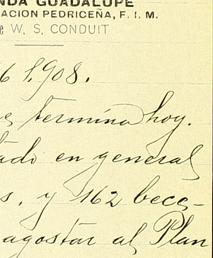 NDA GUADALUPE
ACION PEDRICEÑA, F. I. M.
e W. S. CONDUIT
6 1,908.
termina hoy.
tado en general
s, y 162 bece-
agostar al Plan